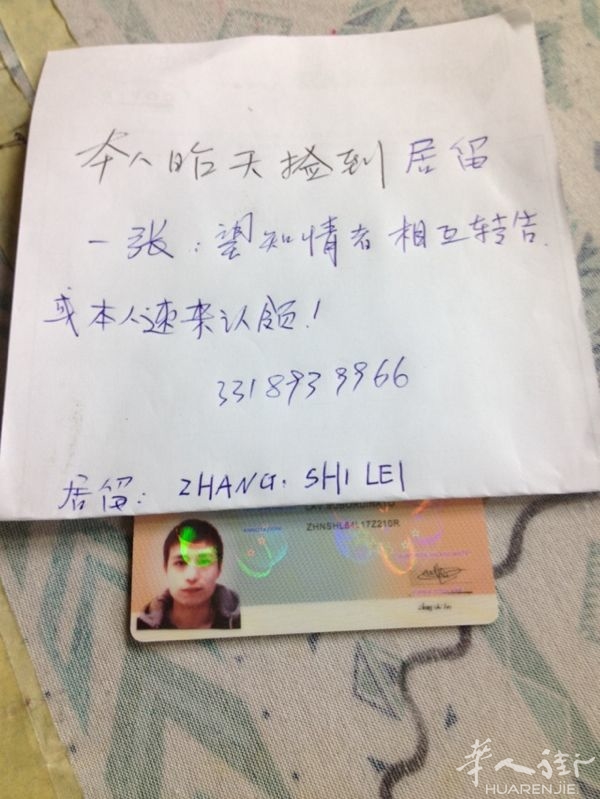 本人昨天捡到居留
一张：望知情者相互转告.
或本人速来认领！
3318939966
居留：ZHANG. SHI LEI
ZHNSHL84L17Z210R
zhang shi lei
華人街
HUARENJIE.COM